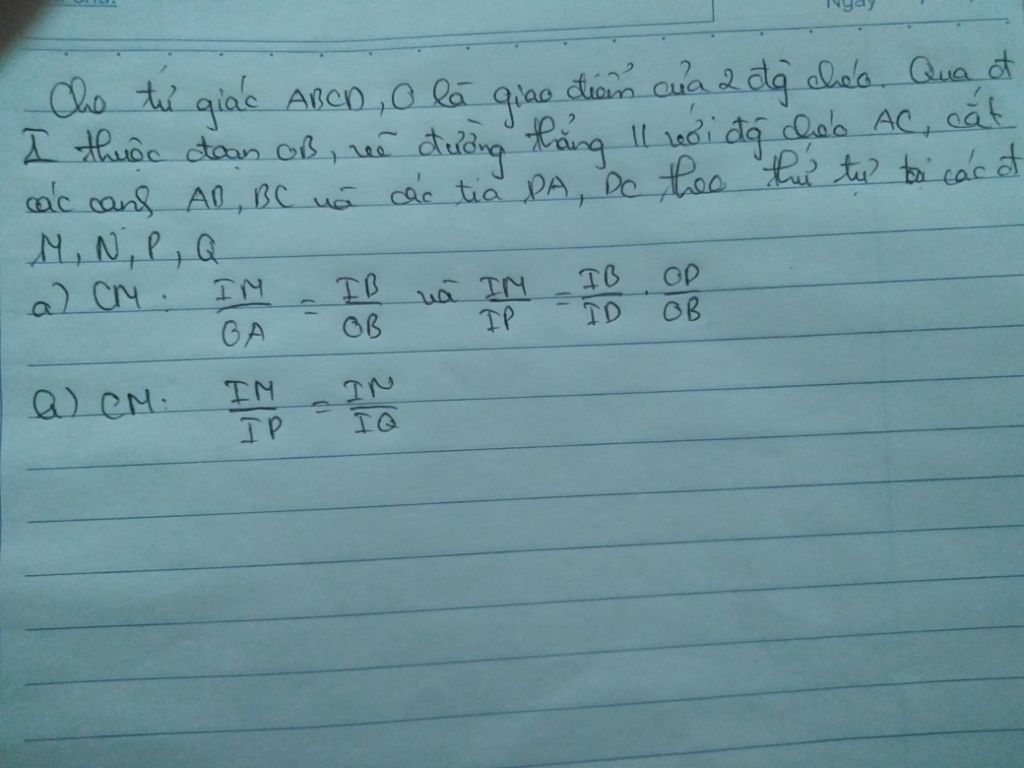 Ngày
Cho tứ giác ABCD, O là giao điểm của 2 đg chéo. Qua đt
I thuộc đoạn OB, vẽ đường thẳng // với đg chéo AC, cắt
các cạnh AB, BC và các tia DA, DC theo thứ tự tại các đt
M, N, P, Q
a) CM: IM/OA = IB/OB và IM/IP = IB/ID . OD/OB
a) CM: IM/IP = IN/IQ